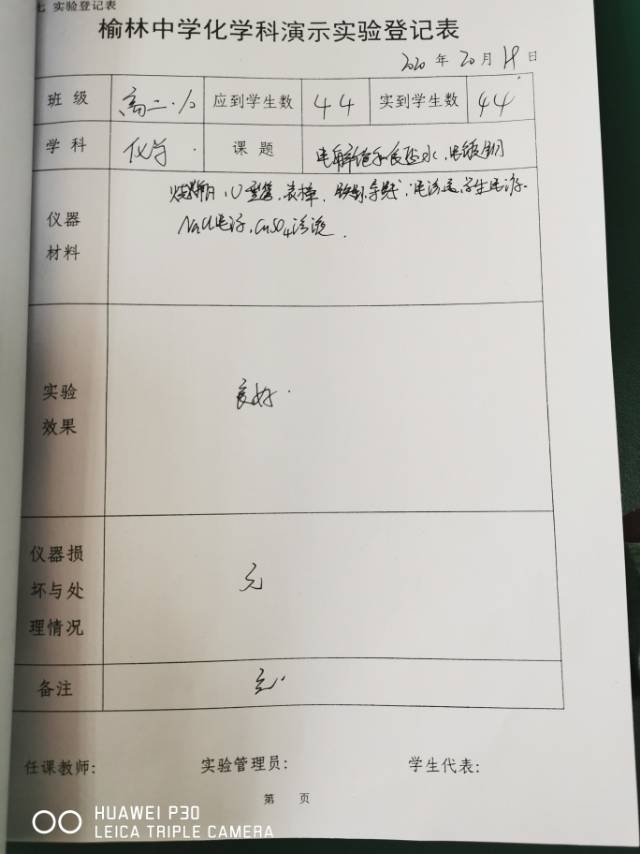 七 实验登记表
榆林中学化学科演示实验登记表
2020 年 20 月 19 日
班 级 高二.10 应到学生数 44 实到学生数 44
学 科 化学 课 题 电解饱和食盐水,电镀铜
U型管 导线
仪器
材料
NaCl CuSO₄溶液.
实验
效果
良好.
仪器损
坏与处
理情况
无
备注
无.
任课教师: 实验管理员: 学生代表:
第 页
HUAWEI P30
LEICA TRIPLE CAMERA